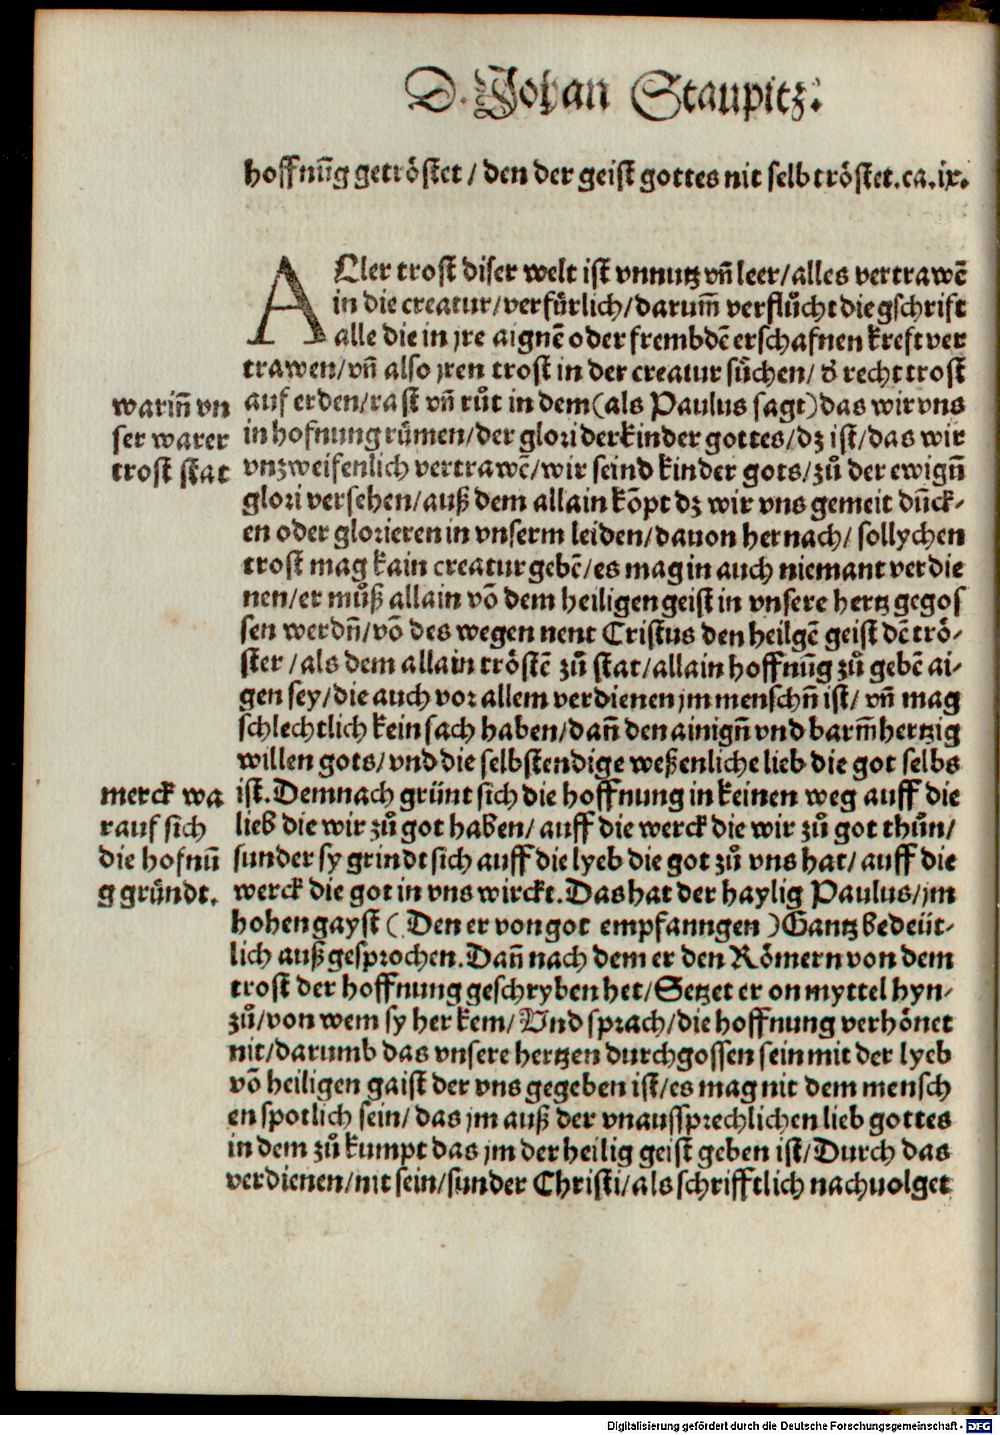 D. Johan Staupitz.
hoffnūg getröstet / den der geist gottes nit selb tröstet. ca. ix.
ALler trost diser welt ist vnnutz vñ leer / alles vertrawē
in die creatur / verfürlich / darum̄ verflůcht die gschrift
alle die in jre aignē oder frembdē erschafnen kreft ver
trawen / vñ also jren trost in der creatur sůchen / d' recht trost
auf erden / rast vñ růt in dem (als Paulus sagt) das wir vns
in hofnung rümen / der glori der kinder gottes / dz ist / das wir
vnzweifenlich vertrawē / wir seind kinder gots / zů der ewigñ
glori versehen / auß dem allain kōpt dz wir vns gemeit dūck-
en oder glorieren in vnserm leiden / dauon hernach / sollychen
trost mag kain creatur gebē / es mag in auch niemant verdie
nen / er můß allain vō dem heiligen geist in vnsere hertz gegos
sen werdñ / vō des wegen nent Cristus den heilgē geist dē trö-
ster / als dem allain tröstē zů stat / allain hoffnūg zů gebē ai-
gen sey / die auch vor allem verdienen jm menschñ ist / vñ mag
schlechtlich kein sach haben / dañ den ainigñ vnd barm̄hertzig
willen gots / vnd die selbstendige weßenliche lieb die got selbs
ist. Demnach grünt sich die hoffnung in keinen weg auff die
lieb die wir zů got haben / auff die werck die wir zů got thůn /
sunder sy grindt sich auff die lyeb die got zů vns hat / auff die
werck die got in vns wirckt. Das hat der haylig Paulus / jm
hohen gayst ( Den er von got empfanngen ) Gantz bedeüt-
lich auß gesprochen. Dañ nach dem er den Römern von dem
trost der hoffnung geschryben het / Setzet er on myttel hyn-
zů / von wem sy her kem / Vnd sprach / die hoffnung verhönet
nit / darumb das vnsere hertzen durchgossen sein mit der lyeb
vō heiligen gaist der vns gegeben ist / es mag nit dem mensch
en spotlich sein / das jm auß der vnaussprechlichen lieb gottes
in dem zů kumpt das jm der heilig geist geben ist / Durch das
verdienen / nit sein / sunder Christi / als schrifftlich nachuolget
wariñ vn
ser warer
trost stat
merck wa
rauf sich
die hofnū
g gründt.
Digitalisierung gefördert durch die Deutsche Forschungsgemeinschaft - DFG